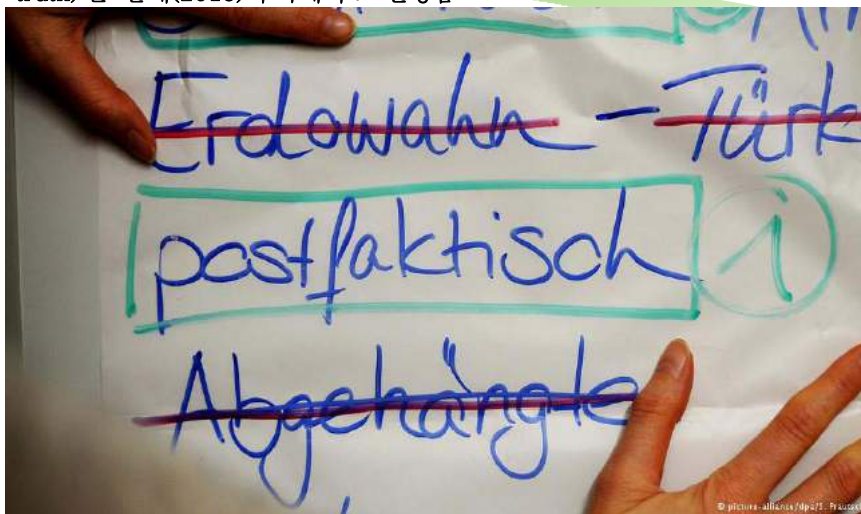 Erdowahn – Türk
postfaktisch 1
Abgehängte
© picture-alliance/dpa/S. Prautsch